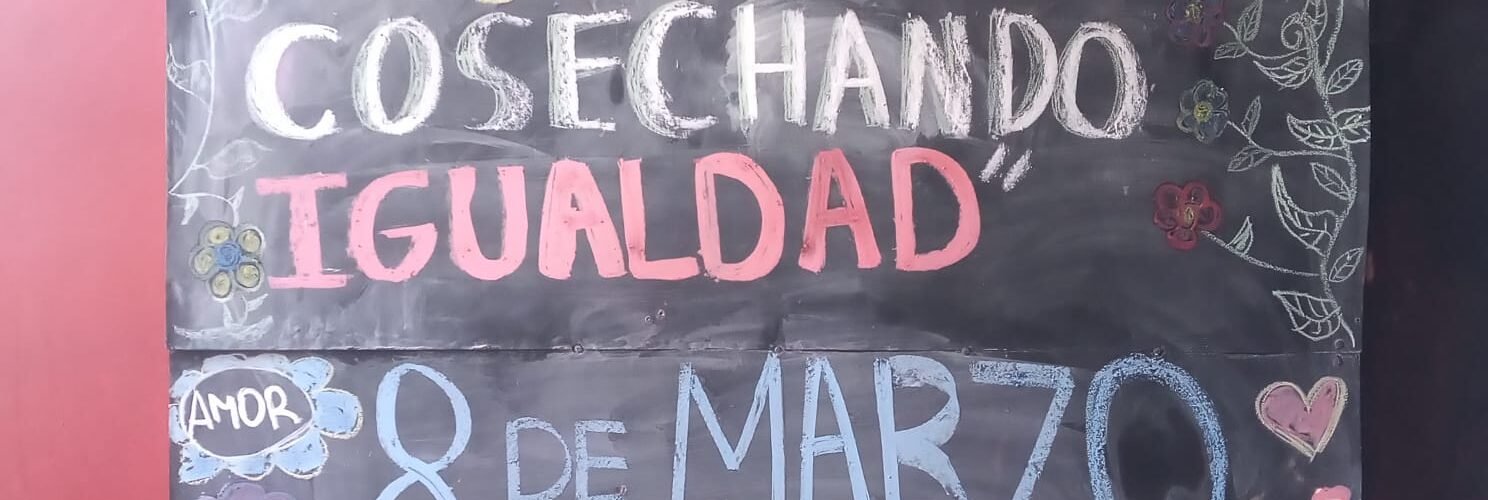 COSECHANDO
IGUALDAD"
AMOR
8 DE MARZO